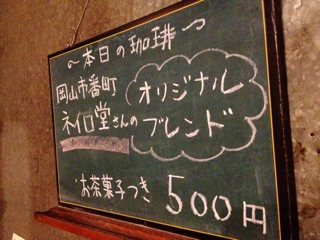 〜本日の珈琲〜
岡山市番町
ネイロ堂さんの
オリジナル
ブレンド
お茶菓子つき 500円